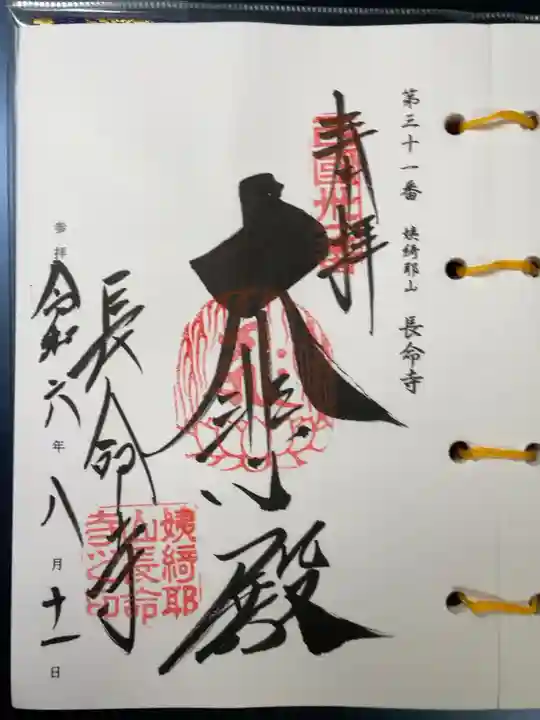 第三十一番 姨綺耶山 長命寺
奉拝
大悲殿
姨綺耶
山長命
寺之印
長命寺
参拝
令和六年八月十一日